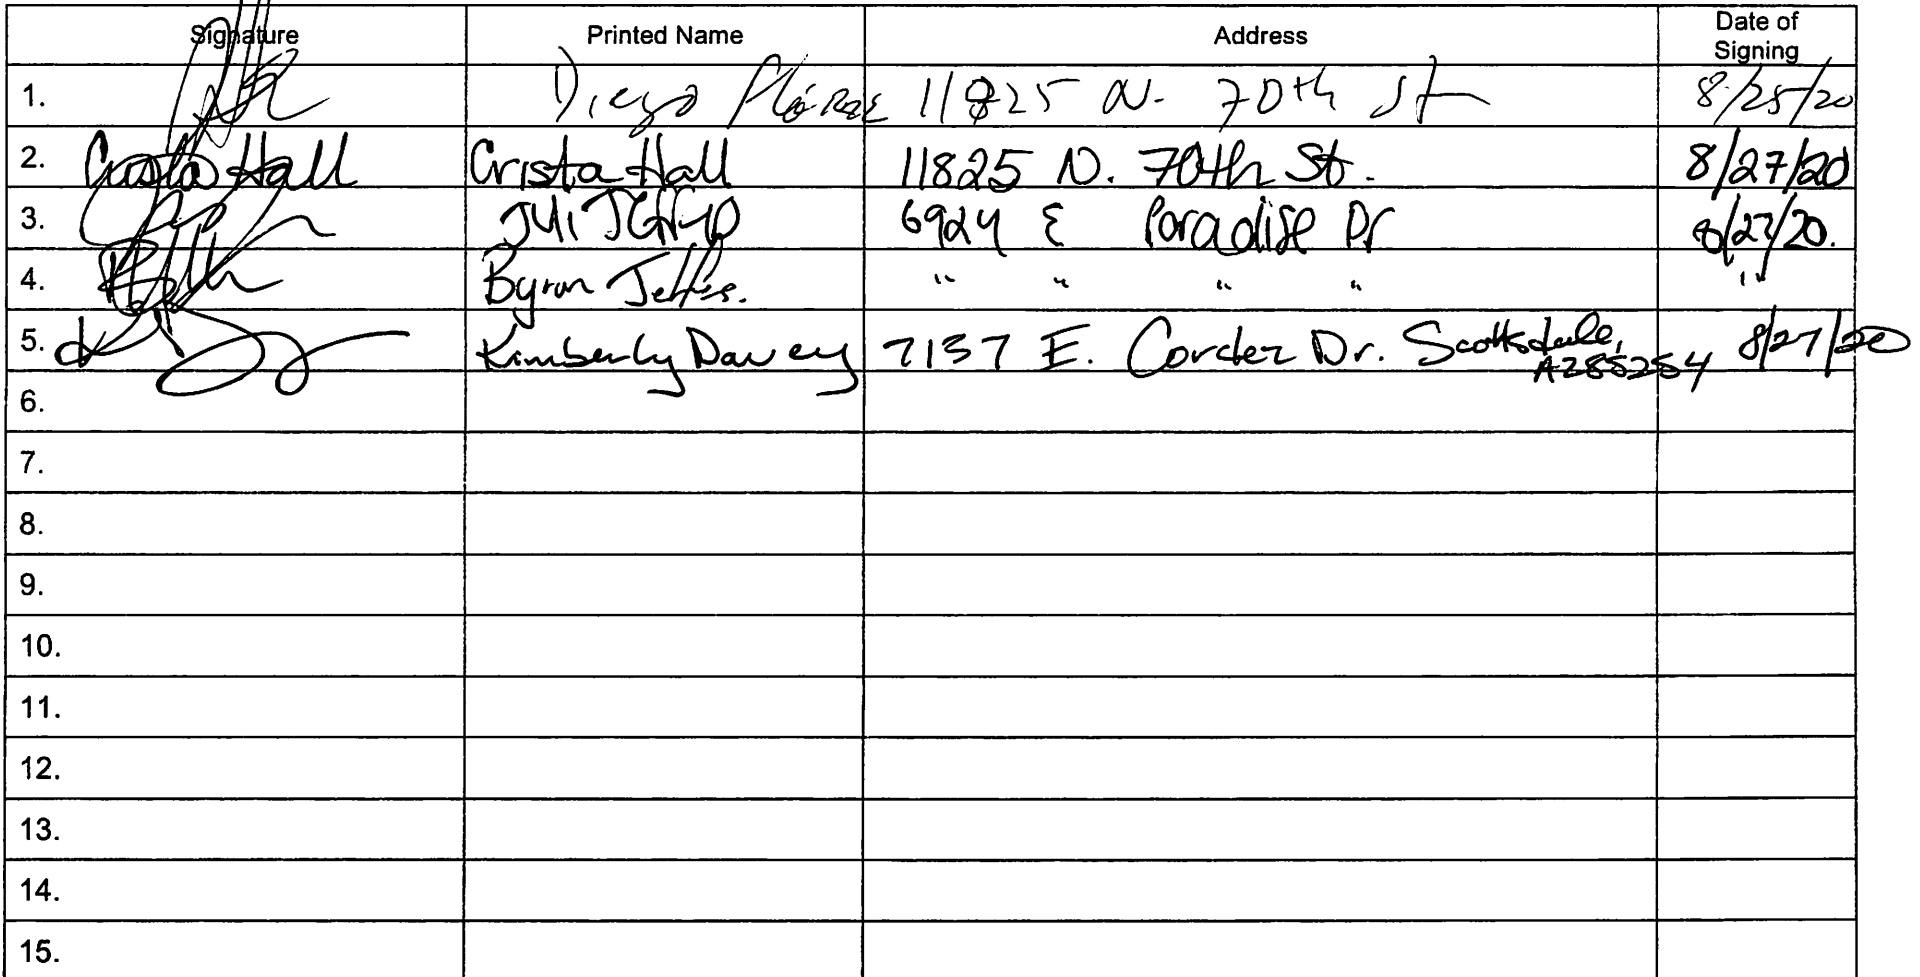 Signature Printed Name Address Date of Signing
1. Diego 11825 N. 70th St 8/25/20
2. Crista Hall Crista Hall 11825 N. 70th St. 8/27/20
3. 6924 E Paradise Dr 8/27/20.
4. Byron " " " " "
5. Kimberly Davey 7137 E. Cordez Dr. Scottsdale, AZ 85254 8/27/20
6.
7.
8.
9.
10.
11.
12.
13.
14.
15.